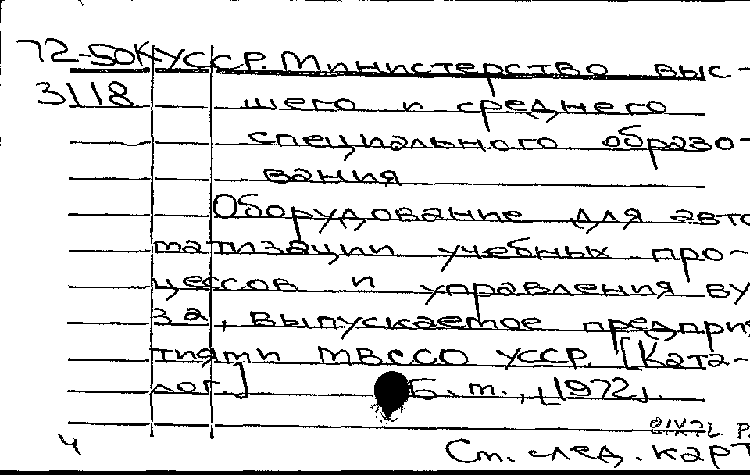 72-50К УССР. Министерство выс-
3118 шего и среднего
специального образо-
вания
Оборудование для авто
матизации учебных про-
цессов и управления ву
за, выпускаемое предприя
тиями МВССО УССР. [Ката-
лог.] Б. м., [1972].
ч
См. след. карт